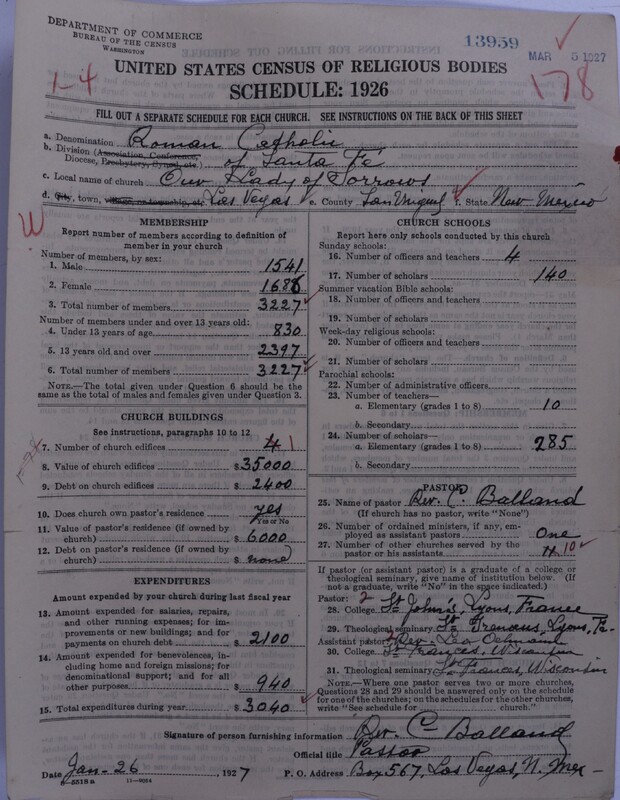 DEPARTMENT OF COMMERCE
BUREAU OF THE CENSUS
WASHINGTON
13959
MAR 5 1927
1-4
178
UNITED STATES CENSUS OF RELIGIOUS BODIES
SCHEDULE: 1926
FILL OUT A SEPARATE SCHEDULE FOR EACH CHURCH. SEE INSTRUCTIONS ON THE BACK OF THIS SHEET
a. Denomination Roman Catholic
b. Division (Association, Conference, Diocese, Presbytery, Synod, etc.) of Santa Fe
c. Local name of church Our Lady of Sorrows
d. City, town, village or township, etc. Las Vegas e. County San Miguel f. State New Mexico
W
MEMBERSHIP
Report number of members according to definition of
member in your church
Number of members, by sex:
1. Male 1541
2. Female 1686
3. Total number of members 3227
Number of members under and over 13 years old:
4. Under 13 years of age 830
5. 13 years old and over 2397
6. Total number of members 3227
NOTE.—The total given under Question 6 should be
same as the total of males and females given under Question 3.
CHURCH BUILDINGS
See instructions, paragraphs 10 to 12
7. Number of church edifices 4 1
8. Value of church edifices $35000
9. Debt on church edifices $2400
10. Does church own pastor's residence? yes
Yes or No
11. Value of pastor's residence (if owned by
church) $6000
12. Debt on pastor's residence (if owned by
church) $none
EXPENDITURES
Amount expended by your church during last fiscal year
13. Amount expended for salaries, repairs,
and other running expenses; for im-
provements or new buildings; and for
payments on church debt $2100
14. Amount expended for benevolences, in-
cluding home and foreign missions; for
denominational support; and for all
other purposes $940
15. Total expenditures during year $3040
CHURCH SCHOOLS
Report here only schools conducted by this church
Sunday schools:
16. Number of officers and teachers 4
17. Number of scholars 140
Summer vacation Bible schools:
18. Number of officers and teachers
19. Number of scholars
Week-day religious schools:
20. Number of officers and teachers
21. Number of scholars
Parochial schools:
22. Number of administrative officers
23. Number of teachers—
a. Elementary (grades 1 to 8) 10
b. Secondary
24. Number of scholars—
a. Elementary (grades 1 to 8) 285
b. Secondary
PASTOR
25. Name of pastor Rev. C. Balland
(If church has no pastor, write "None")
26. Number of ordained ministers, if any, em-
ployed as assistant pastors One
27. Number of other churches served by the
pastor or his assistants 11 10
If pastor (or assistant pastor) is a graduate of a college or
theological seminary, give name of institution below. (If
not a graduate, write "No" in the space indicated.)
Pastor: 2
28. College St John's, Lyons, France
29. Theological seminary St Irenaus, Lyons, Fr-
Assistant pastor: Rev. Leo
30. College St Frances, Wisconsin
31. Theological seminary St Frances, Wisconsin
NOTE.—Where one pastor serves two or more churches,
Questions 28 and 29 should be answered only on the schedule
for one of the churches; on the schedules for the other churches,
write "See schedule for church."
Signature of person furnishing information Rev. C- Balland
Official title Pastor
Date Jan- 26, 1927 P. O. Address Box 567, Las Vegas, N. Mex-
8818 a 11—9024